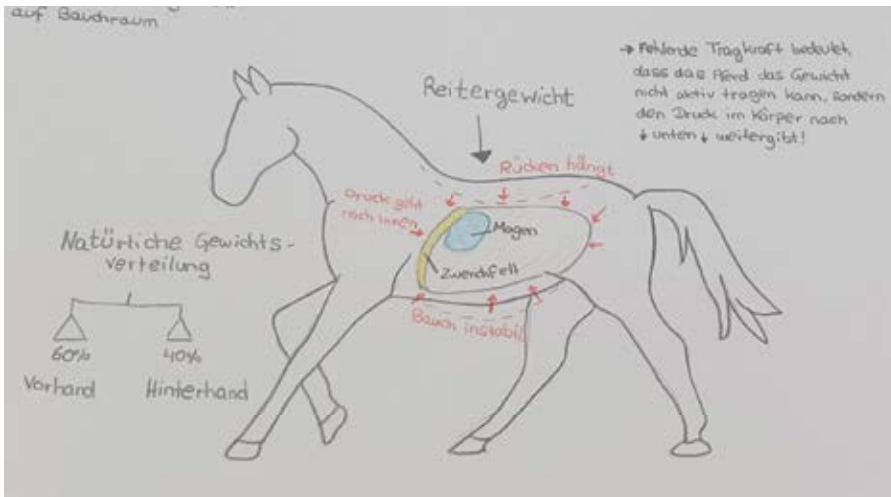 auf Bauchraum
→ Fehlende Tragkraft bedeutet,
dass das Pferd das Gewicht
nicht aktiv tragen kann, sondern
den Druck im Körper nach
↓ unten ↓ weitergibt!
Reitergewicht
Rücken hängt
Druck geht
nach innen
Magen
Zwerchfell
Bauch instabil
Natürliche Gewichts-
verteilung
60% 40%
Vorhand Hinterhand